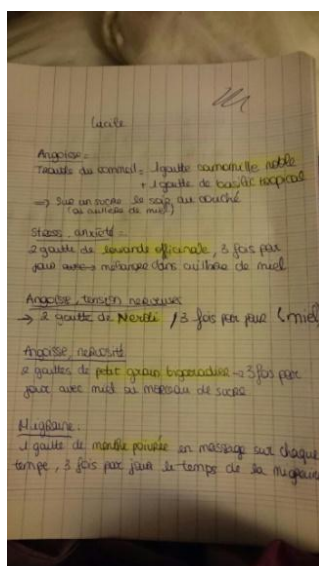 Lucile
Angoisse =
Trouble du sommeil = 1 goutte camomille noble
+ 1 goutte de basilic tropical
=> Sur un sucre le soir au couché
(ou cuillère de miel)
Stress, anxiété =
2 goutte de lavande officinale, 3 fois par
jour avec → mélanger dans cuillère de miel
Angoisse, tension nerveuses
→ 2 goutte de Neroli / 3 fois par jour (miel
Angoisse, nervosité
2 gouttes de petit grain bigaradier → 3 fois par
jour avec miel ou morceau de sucre
Migraine.
1 goutte de menthe poivrée en massage sur chaque
tempe, 3 fois par jour le temps de la migraine